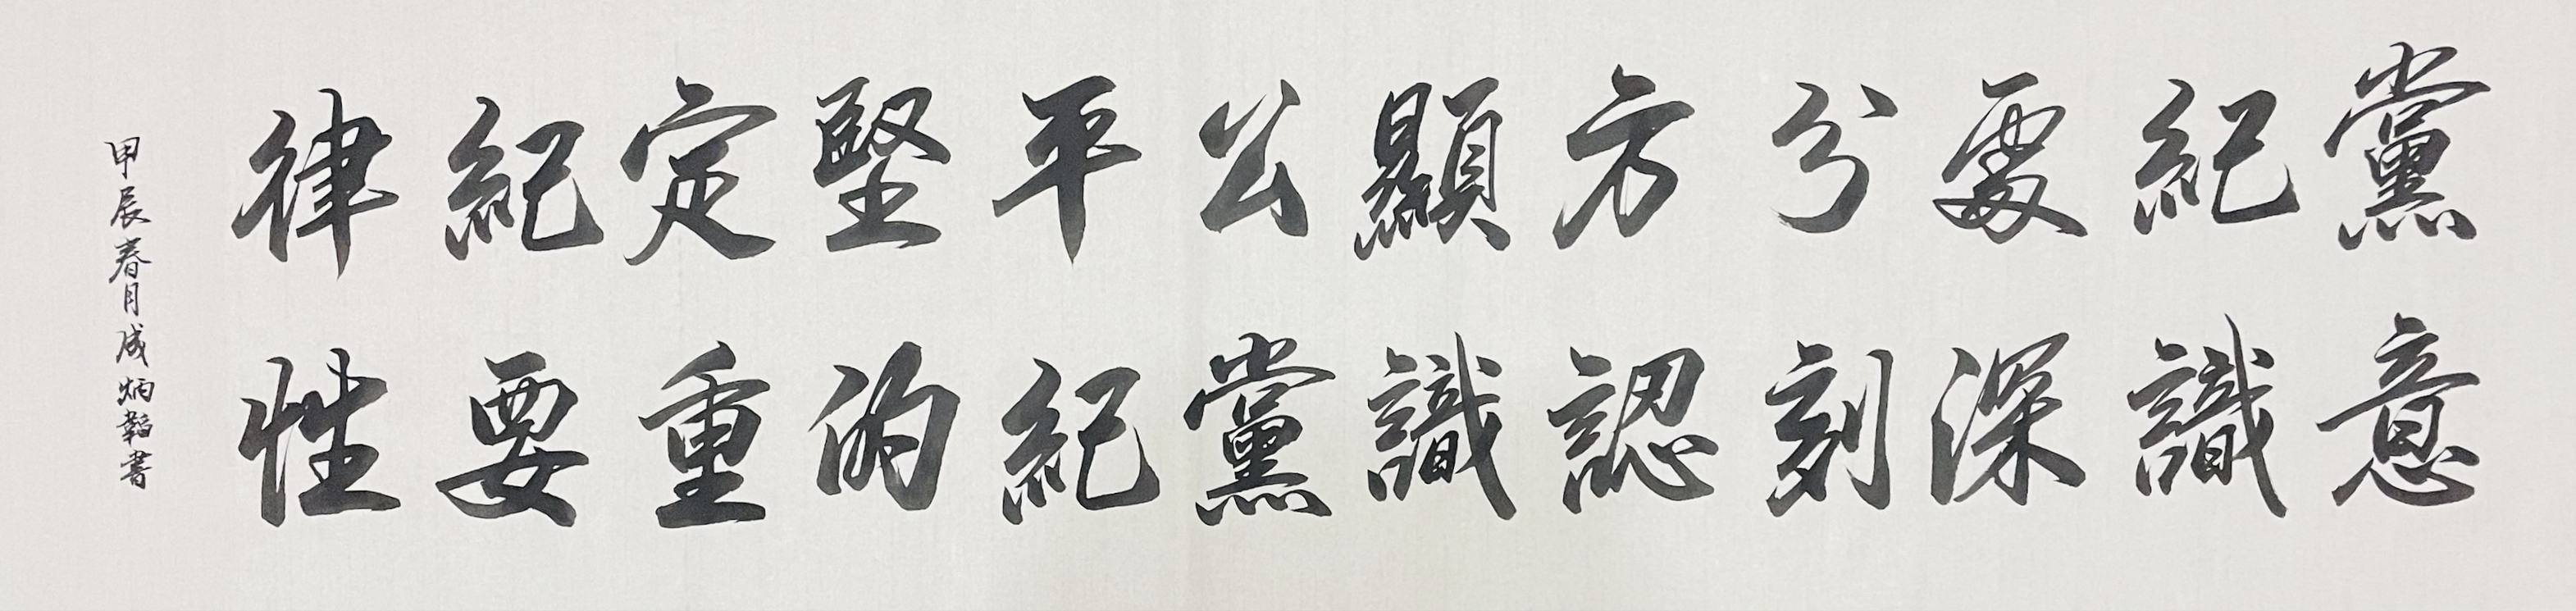 黨紀處分方顯公平堅定紀律
意識深刻認識黨紀的重要性
甲辰春月成炳韜書